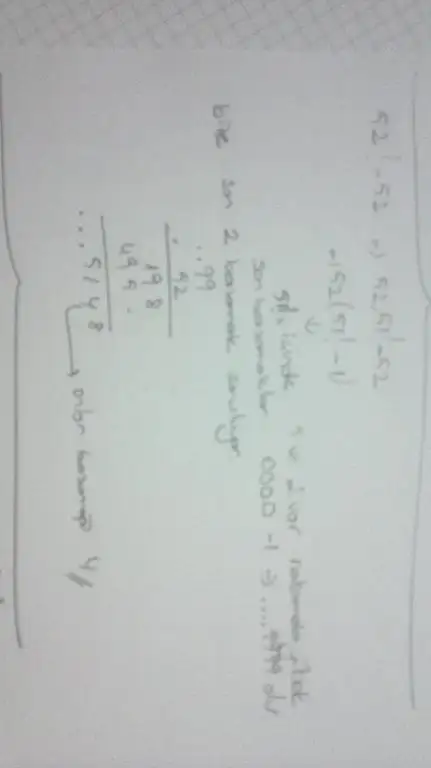 52! - 52 => 52.51! - 52
→ 52(51! - 1)
51! içinde 5 ve 2 var
son basamaklar 0000 - 1 => .....9999 dur
bize son 2 basamak soruluyor
..99
52
.
198
495.
...5148
→ onlar basamağı 4//